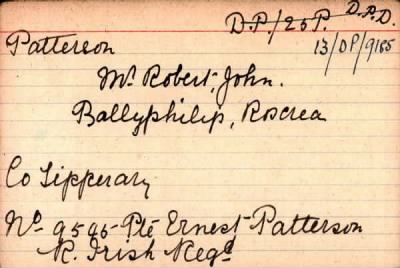 D.P./25P. D.P.D.
Patterson 13/DP/9185
Mr. Robert, John.
Ballyphilip, Roscrea
Co Tipperary
No. 9595 Pte Ernest Patterson
R. Irish Regt